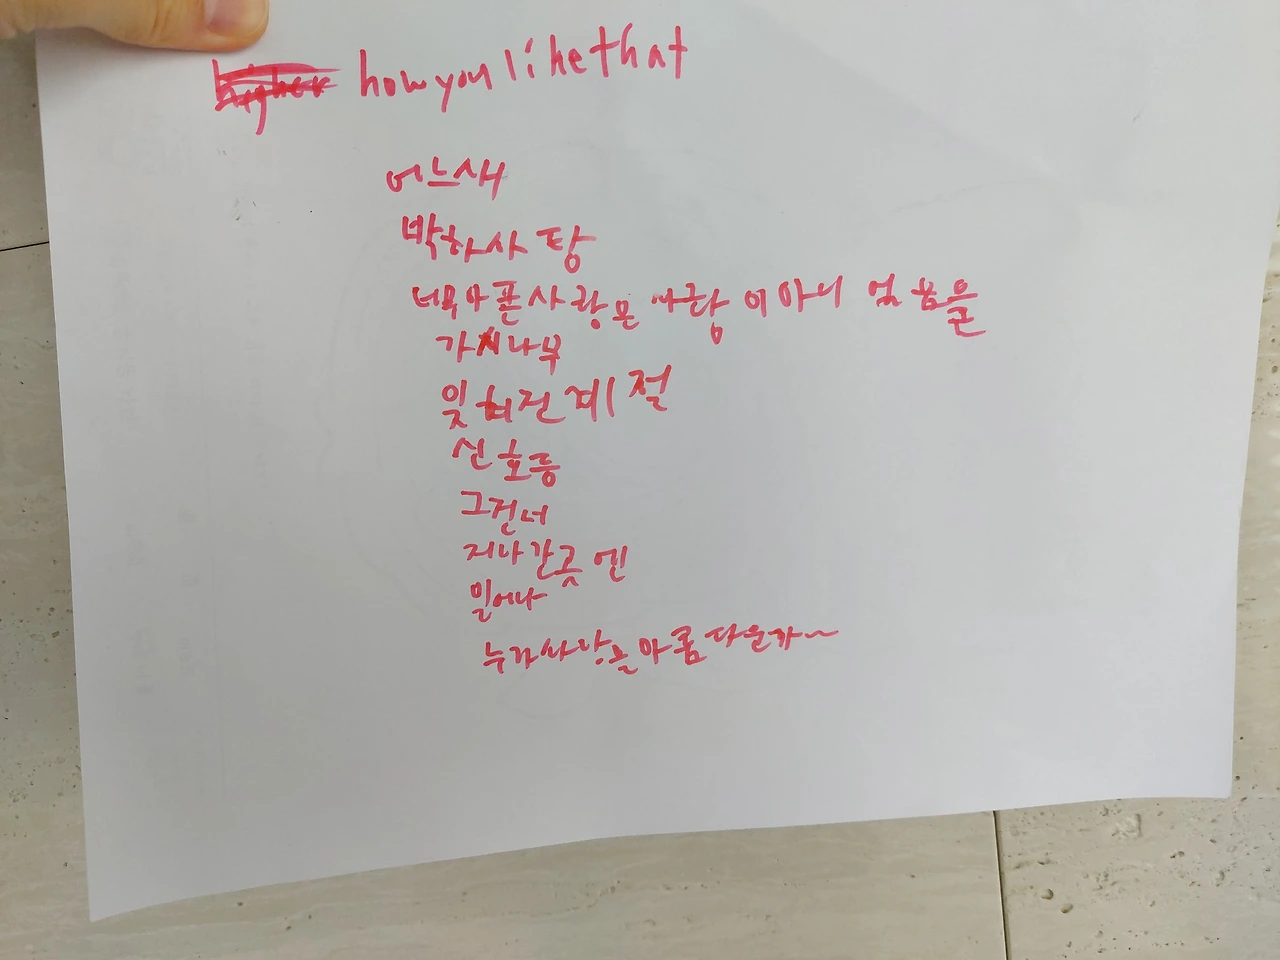 how you like that
어느새
박하사탕
너무아픈사랑은 사랑이아니었음을
가시나무
잊혀진계절
신호등
그건너
지나간곳엔
일어나
누가사랑을아름다운가~